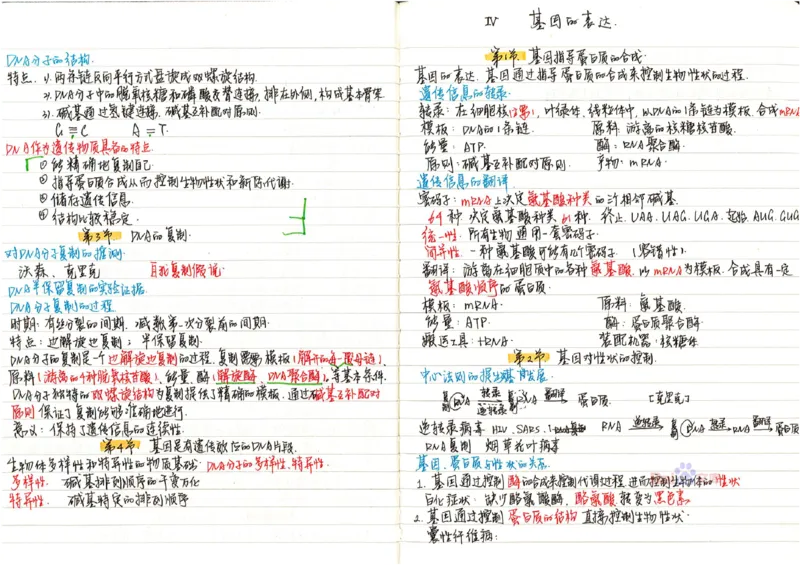 DNA分子的结构.
特点: 1). 两条链反向平行方式盘旋成双螺旋结构.
2). DNA分子中的脱氧核糖和磷酸交替连接, 排在外侧, 构成基本骨架
3). 碱基通过氢键连接, 碱基互补配对原则.
G≡C A=T.
DNA作为遗传物质具备的特点
① 能精确地复制自己.
② 指导蛋白质合成从而控制生物性状和新陈代谢.
③ 储存遗传信息.
④ 结构比较稳定.
第3节 DNA的复制.
对DNA分子复制的推测.
沃森、克里克 半保留复制假说.
DNA半保留复制的实验证据.
DNA分子复制的过程.
时期: 有丝分裂的间期, 减数第一次分裂前的间期.
特点: 边解旋边复制; 半保留复制.
DNA分子的复制是一个边解旋边复制的过程. 复制需要模板(解开的每一段母链),
原料(游离的4种脱氧核苷酸), 能量, 酶(解旋酶、DNA聚合酶), 等基本条件.
DNA分子独特的双螺旋结构为复制提供了精确的模板. 通过碱基互补配对
原则保证了复制能够准确地进行.
意义: 保持了遗传信息的连续性.
第4节 基因是有遗传效应的DNA片段.
生物体多样性和特异性的物质基础: DNA分子的多样性、特异性.
多样性. 碱基排列顺序的千变万化
特异性. 碱基特定的排列顺序
IV 基因的表达.
第1节 基因指导蛋白质的合成.
基因的表达. 基因通过指导蛋白质的合成来控制生物性状的过程.
遗传信息的转录.
转录: 在细胞核(主要), 叶绿体、线粒体中, 以DNA的1条链为模板, 合成mRNA
模板: DNA的1条链. 原料: 游离的核糖核苷酸.
能量: ATP. 酶: RNA聚合酶.
原则: 碱基互补配对原则. 产物: mRNA.
遗传信息的翻译
密码子: mRNA上决定氨基酸种类的三个相邻碱基.
64种 决定氨基酸种类61种. 终止. UAA. UAG. UGA. 起始 AUG. GUG
统一性: 所有生物通用一套密码子.
简并性. 一种氨基酸可能有几个密码子. (容错性).
翻译: 游离在细胞质中的各种氨基酸, 以mRNA为模板. 合成具有一定
氨基酸顺序的蛋白质.
模板: mRNA. 原料: 氨基酸.
能量: ATP. 酶: 蛋白质聚合酶.
搬运工具: tRNA. 装配机器: 核糖体.
第2节 基因对性状的控制.
中心法则的提出及其发展.
复制 DNA 转录 逆转录 RNA 翻译 蛋白质. [克里克]
逆转录病毒 HIV. SARS. RNA 逆转录 DNA 转录 RNA 翻译 蛋白质
RNA复制 烟草花叶病毒
基因、蛋白质与性状的关系.
1. 基因通过控制酶的合成来控制代谢过程, 进而控制生物体的性状
白化症状: 缺少酪氨酸酶, 酪氨酸转变为黑色素.
2. 基因通过控制蛋白质的结构直接控制生物性状.
囊性纤维病: